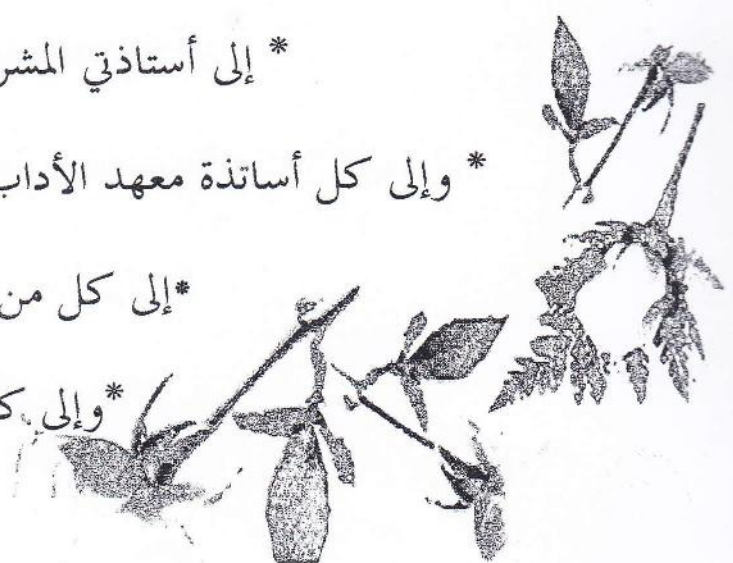 * إلى أستاذتي المشر
* وإلى كل أساتذة معهد الأداب
*إلى كل من
*وإلى